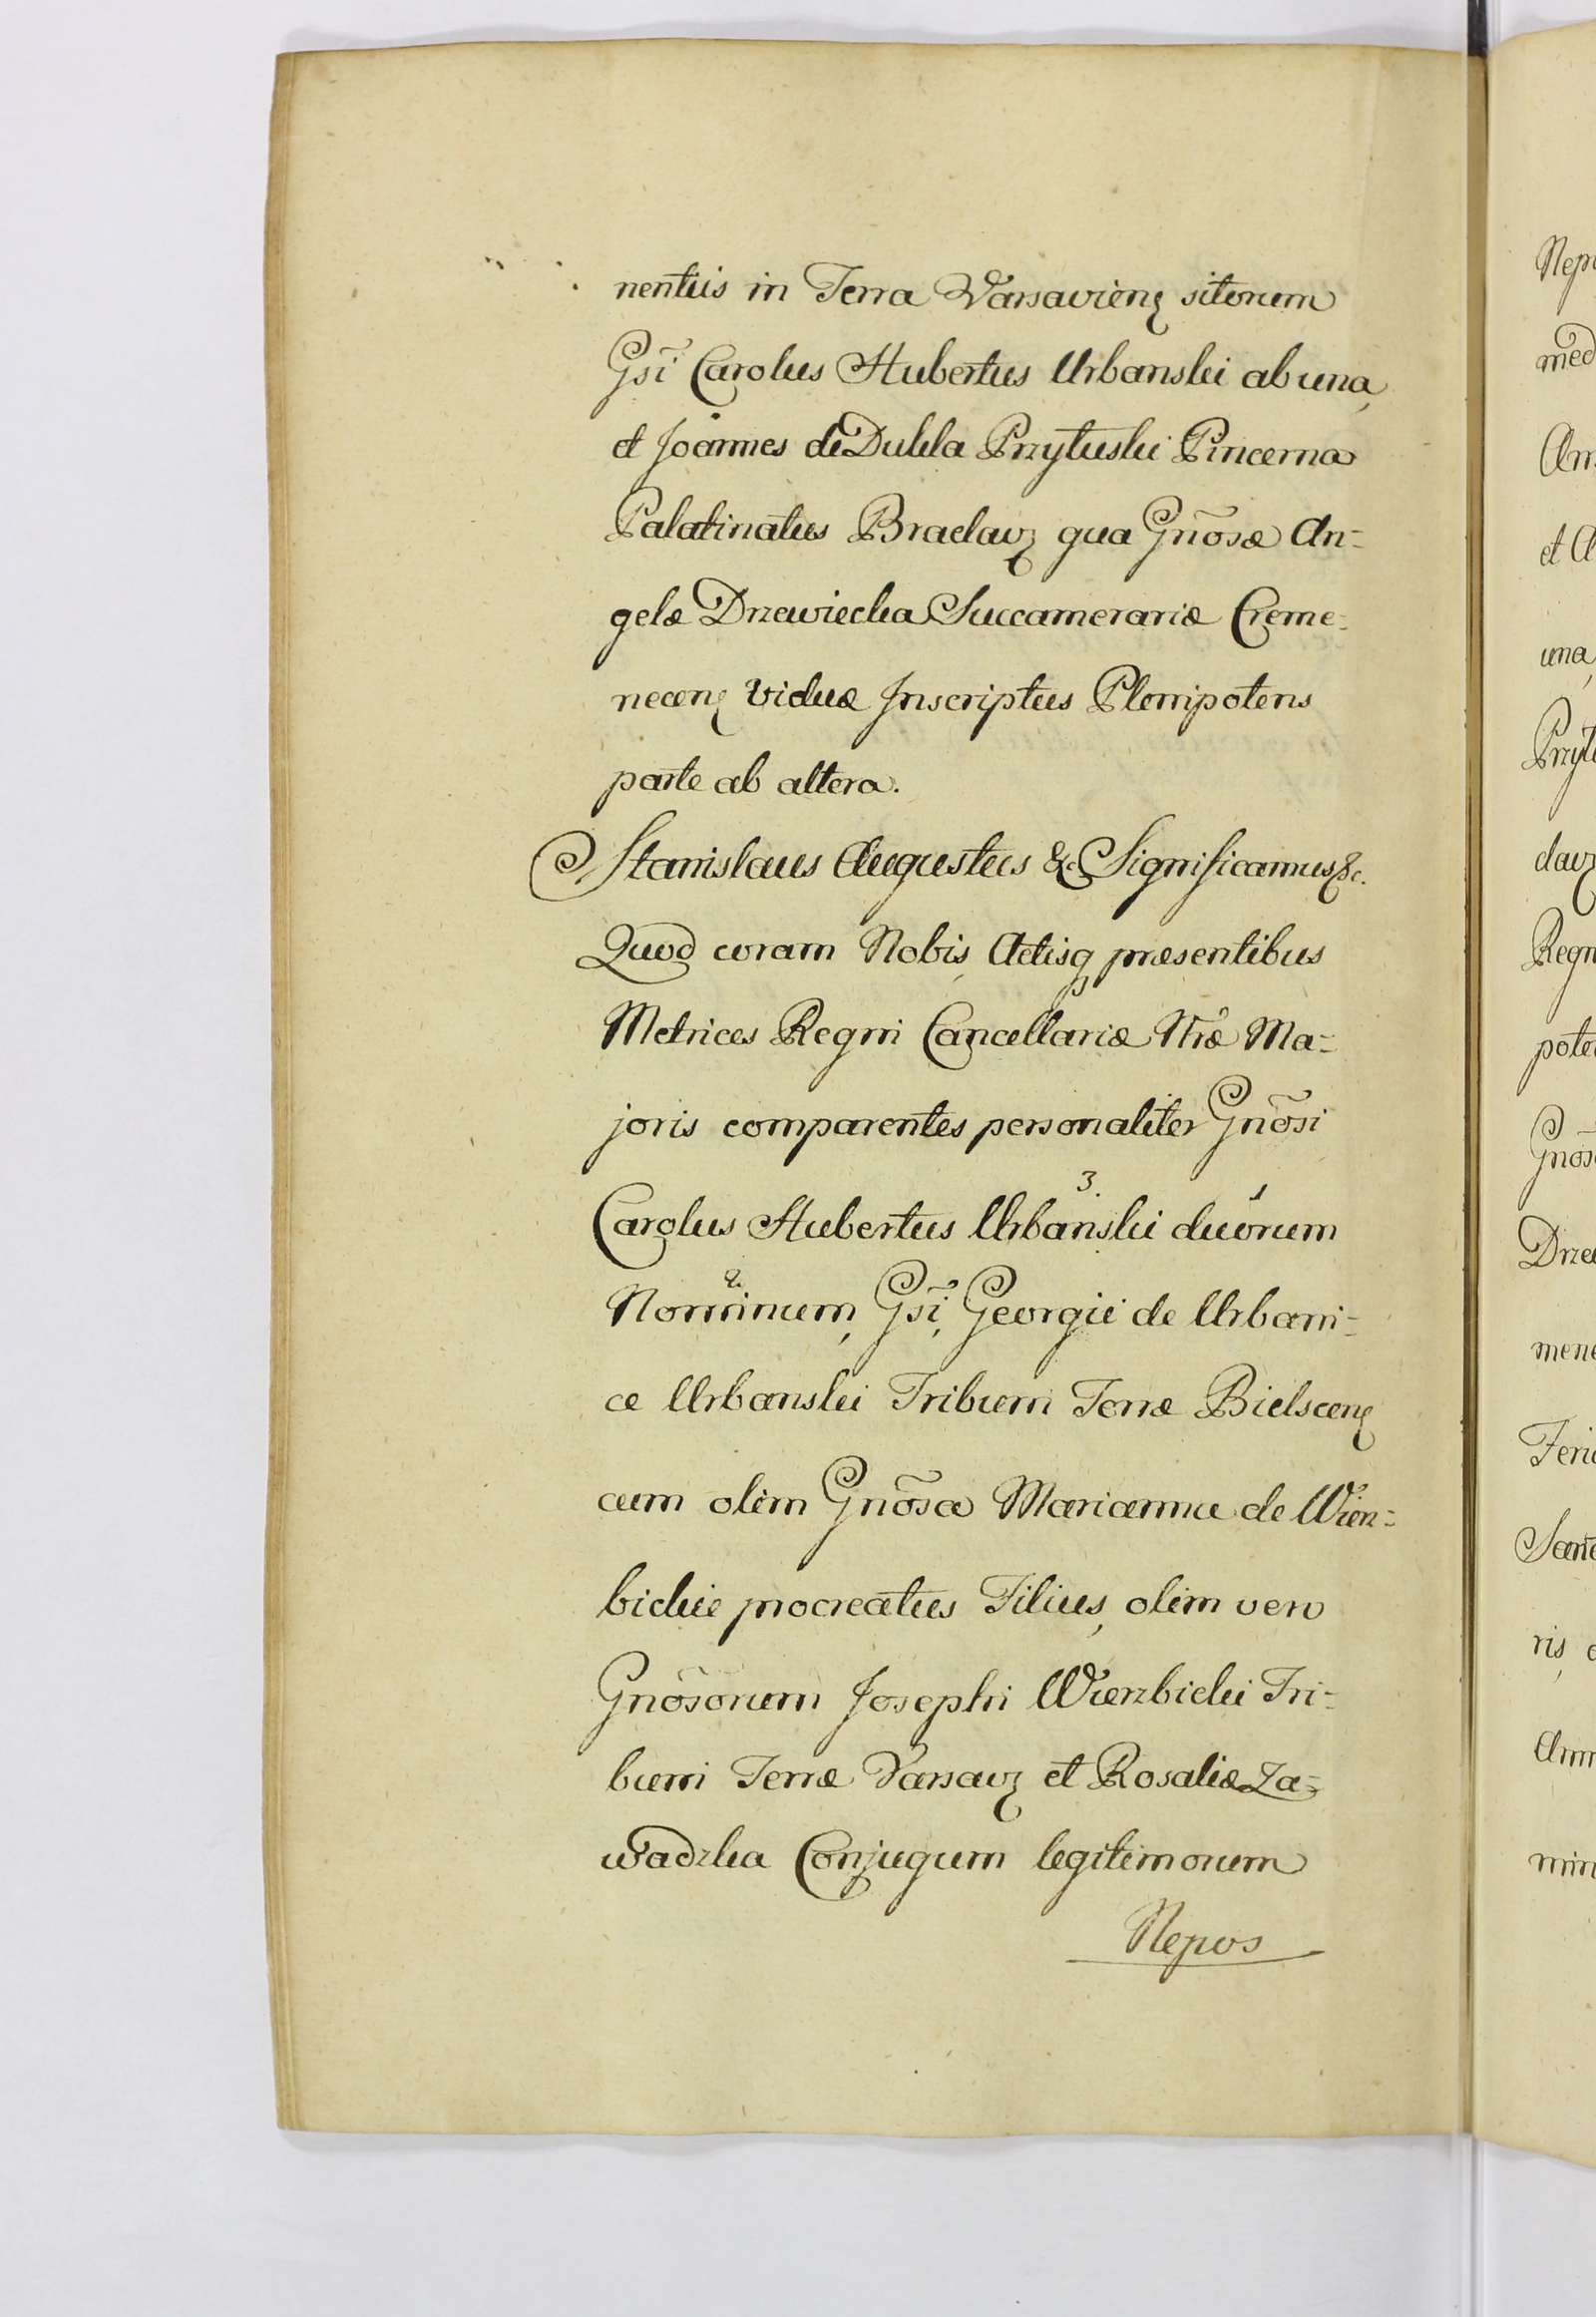 nentiis in Terra Varsavien̄ sitorum
Gsi Carolus Hubertus Urbanski ab una,
et Joannes de Dukla Przyłuski Pincerna
Palatinatus Braclav̄ qua Gnosæ An-
gelæ Drzewiecka Succamerariæ Creme-
necen̄ Viduæ Inscriptus Plenipotens
parte ab altera.
Stanislaus Augustus &c Significamus &c.
Quod coram Nobis, Actisq̄ præsentibus
Metrices Regni Cancellariæ Nr̃æ Ma-
joris comparentes personaliter Gnõsi
Carolus Hubertus Urbanski 3. duorum 1
Nominum 2., Gsi, Georgii de Urbani-
ce Urbanski Tribuni Terræ Bielscen̄
cum olim Gnõsa Marianna de Wierz-
bickie procreatus Filius, olim vero
Gnõsorum Josephi Wierzbicki Tri-
buni Terræ Varsav̄ et Rosaliæ Za-
wadzka Conjugum legitimorum
Nepos